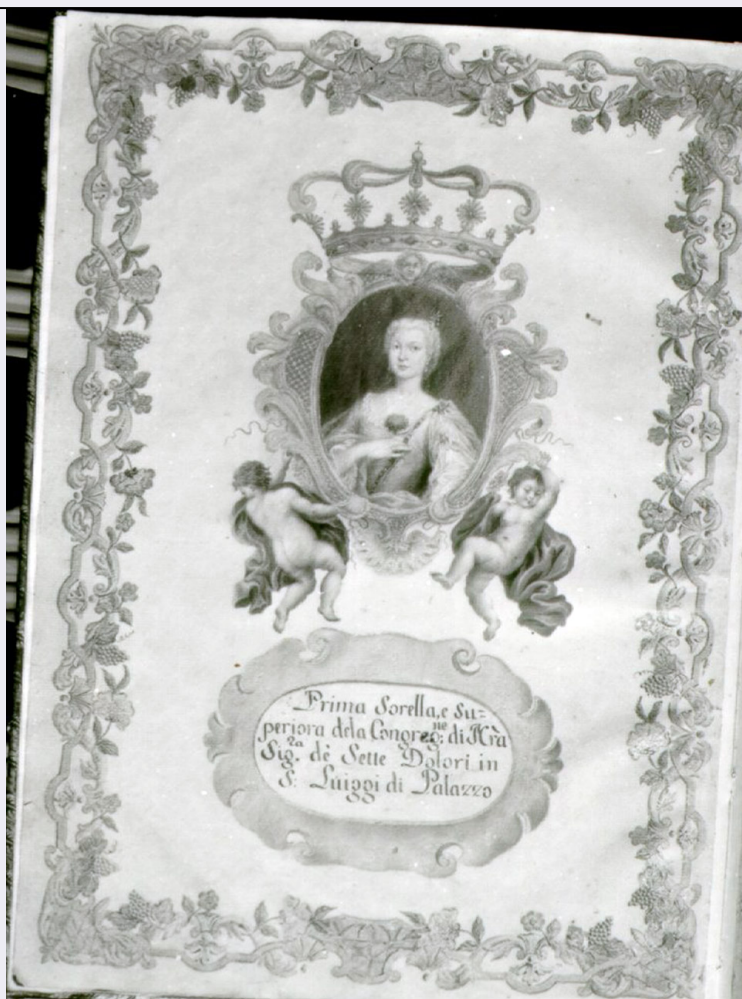 Prima Sorella, e Su=
periora dela Congreg:ne di Nrà
Sig.ra dè Sette Dolori in
S: Luiggi di Palazzo